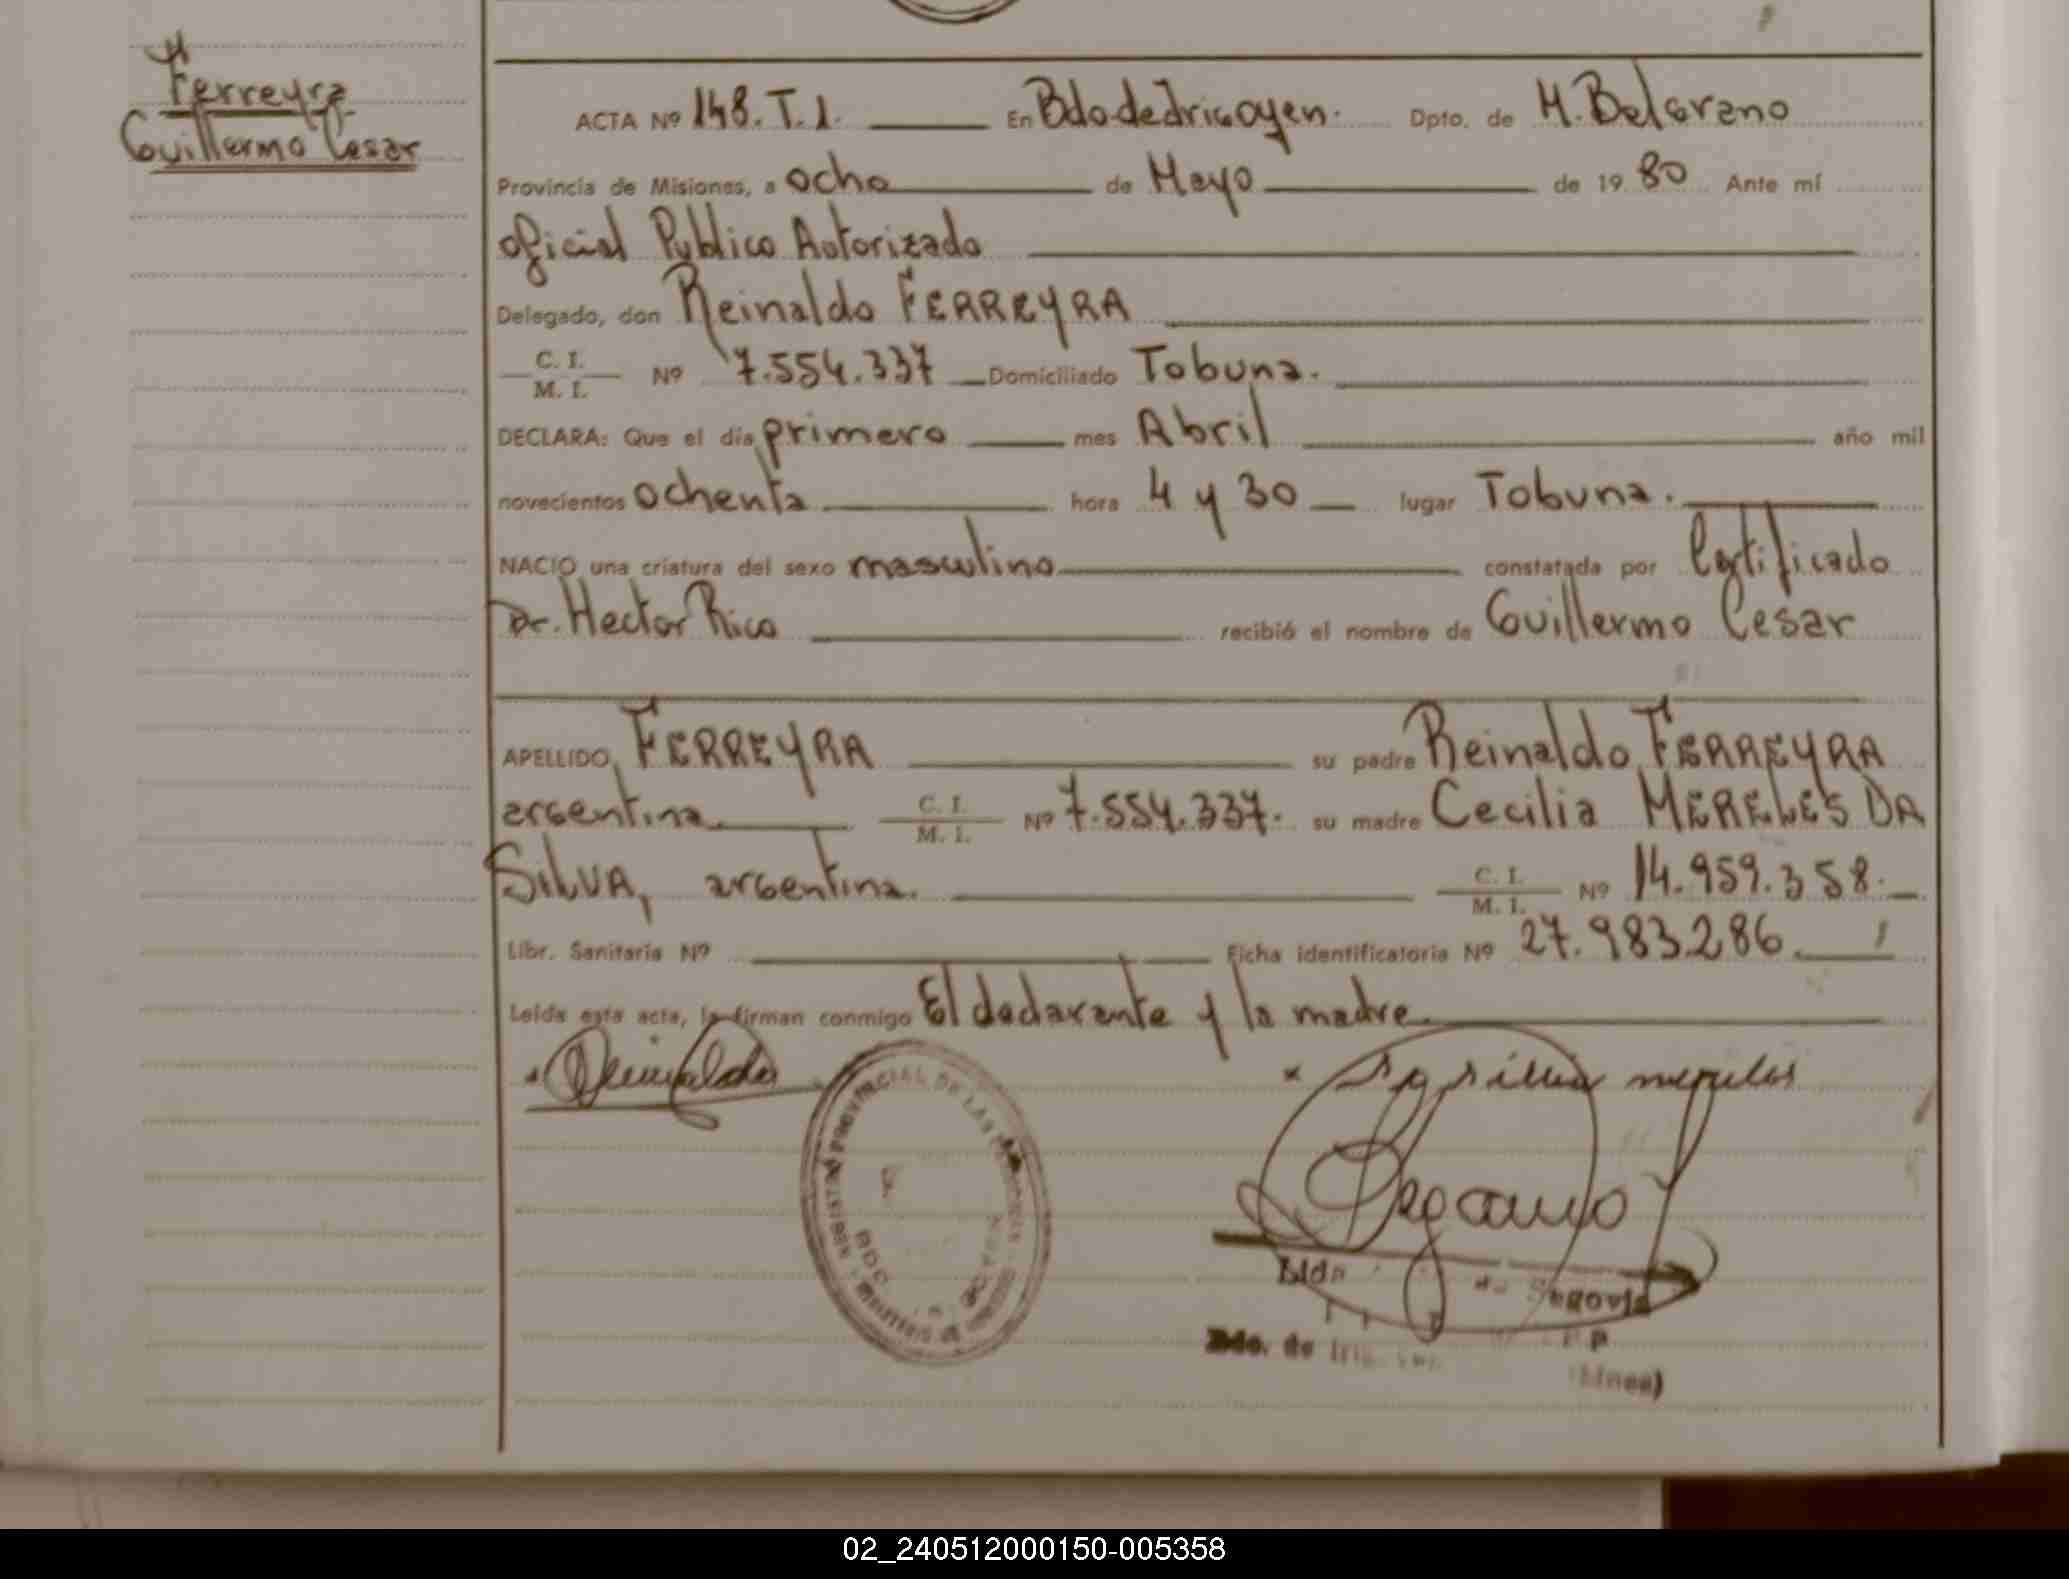 Ferreyra
Guillermo Cesar
ACTA Nº 148.T.1. En Bdo de Irigoyen. Dpto. de M. Belgrano
Provincia de Misiones, a ocho de Mayo de 19 80 Ante mí
oficial Publico Autorizado
Delegado, don Reinaldo FERREYRA
C. I.
M. I. Nº 7.554.337 Domiciliado Tobuna.
DECLARA: Que el día primero mes Abril año mil
novecientos ochenta hora 4 y 30 lugar Tobuna.
NACIO una criatura del sexo masculino constatada por Certificado
Dr. Hector Rico recibió el nombre de Guillermo Cesar
APELLIDO FERREYRA su padre Reinaldo FERREYRA
argentina C. I. M. I. Nº 7.554.337. su madre Cecilia MERELES DA
SILVA, argentina. C. I. M. I. Nº 14.959.358.
Libr. Sanitaria Nº Ficha identificatoria Nº 27.983.286.
Leída esta acta, la firman conmigo El declarante y la madre.
Reinaldo
REGISTRO PROVINCIAL DE LAS PERSONAS
de Segovia
Bdo. de
(Mnes)
02_240512000150-005358